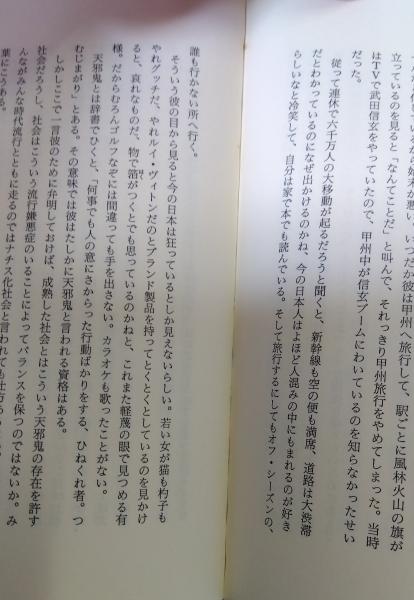 立っているのを見ると「なんてことだ」と叫んで、それっきり甲州旅行をやめてしまった。当時
はTVで武田信玄をやっていたので、甲州中が信玄ブームにわいているのを知らなかったせい
だった。
従って連休で六千万人の大移動が起るだろうと聞くと、新幹線も空の便も満席、道路は大渋滞
だとわかっているのになぜ出かけるのかね、今の日本人はよほど人混みの中にもまれるのが好き
らしいなと冷笑して、自分は家で本でも読んでいる。そして旅行するにしてもオフ・シーズンの、
誰も行かない所へ行く。
そういう彼の目から見ると今の日本は狂っているとしか見えないらしい。若い女が猫も杓子も
やれグッチだ、やれルイ・ヴィトンだのとブランド製品を持ってとくとくとしているのを見かけ
ると、哀れなものだ、物で箔がつくとでも思っているのかねと、これまた軽蔑の眼で見つめる有
様。だからむろんゴルフなぞには間違っても手を出さない。カラオケも歌ったことがない。
天邪鬼とは辞書でひくと、「何事でも人の意にさからった行動ばかりをする、ひねくれ者。つ
むじまがり」とある。その意味では彼はたしかに天邪鬼と言われる資格はある。
しかしここで一言彼のために弁明しておけば、成熟した社会とはこういう天邪鬼の存在を許す
社会だろうし、社会はこういう流行嫌悪症のいることによってバランスを保つのではないか。み
んながみんな時代流行とともに走るのではナチス化社会と言われても仕方